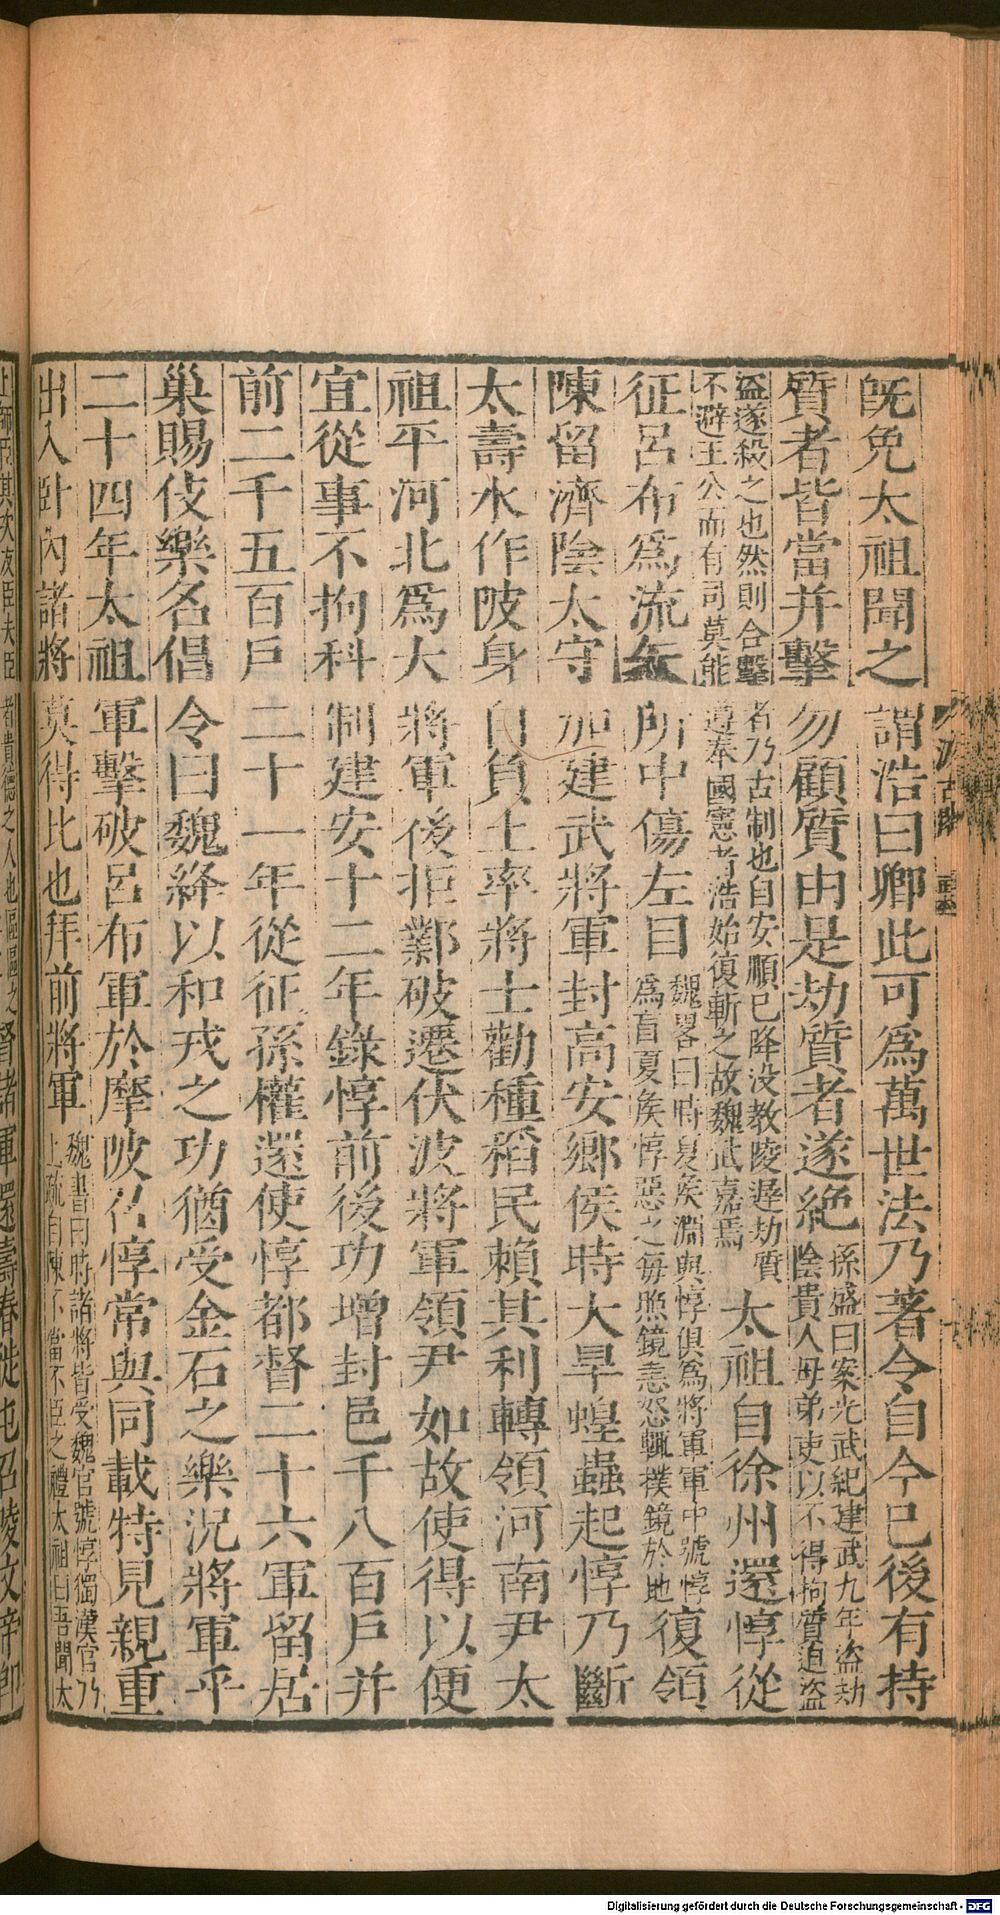 既免太祖聞之謂浩曰卿此可爲萬世法乃著令自今已後有持
質者皆當并擊勿顧質由是劫質者遂絶
孫盛曰案光武紀建武九年盜劫
陰貴人母弟吏以不得拘質迫盜
盜遂殺之也然則合擊者乃古制也自安順已降没教陵遲劫質
不避王公而有司莫能遵奉國憲者浩始復斬之故魏武嘉焉
太祖自徐州還惇從
征呂布爲流矢所中傷左目
魏畧曰時夏侯淵與惇俱爲將軍軍中號惇
爲盲夏侯惇惡之每照鏡恚怒輒撲鏡於地
復領
陳留濟陰太守加建武將軍封高安鄉侯時大旱蝗蟲起惇乃斷
太壽水作陂身自負土率將士勸種稻民賴其利轉領河南尹太
祖平河北爲大將軍後拒鄴破遷伏波將軍領尹如故使得以便
宜從事不拘科制建安十二年錄惇前後功增封邑千八百戶并
前二千五百戶二十一年從征孫權還使惇都督二十六軍留居
巢賜伎樂名倡令曰魏絳以和戎之功猶受金石之樂況將軍乎
二十四年太祖軍擊破呂布軍於摩陂召惇常與同載特見親重
出入卧內諸將莫得比也拜前將軍
魏書曰時諸將皆受魏官號惇獨漢官乃
上疏自陳不當不臣之禮太祖曰吾聞太
上師臣其次友臣夫臣者貴德之人也區區之
督諸軍還壽春徙屯召陵文帝卽
Digitalisierung gefördert durch die Deutsche Forschungsgemeinschaft - DFG